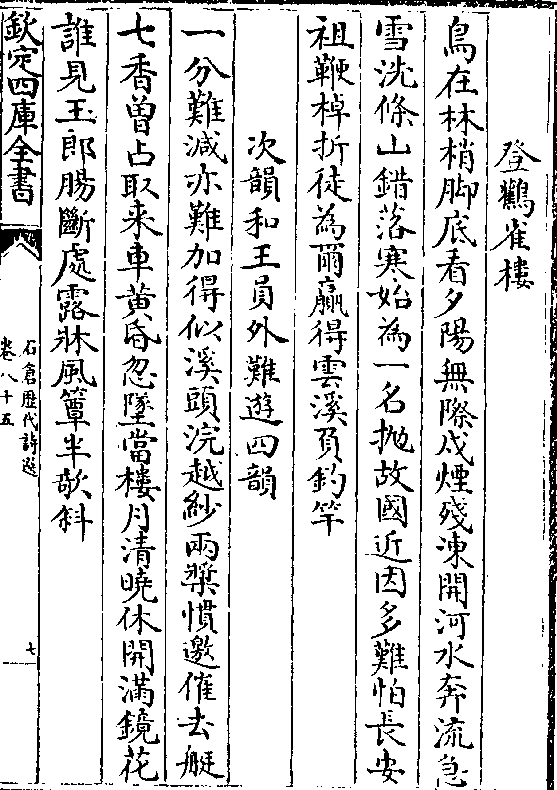 登鸛雀樓
鳥在林梢脚底看夕陽無際戍煙殘凍開河水奔流急
雪洗條山錯落寒始為一名抛故國近因多難怕長安
祖鞭棹折徒為爾贏得雲溪負釣竿
次韻和王員外難遊四韻
一分難減亦難加得似溪頭浣越紗兩槳慣邀催去艇
七香曽占取来車黄昏忽墜當樓月清曉休開滿鏡花
誰見玉郎腸斷處露牀風簟半欹斜
欽定四庫全書
石倉歴代詩選
卷八十五
七